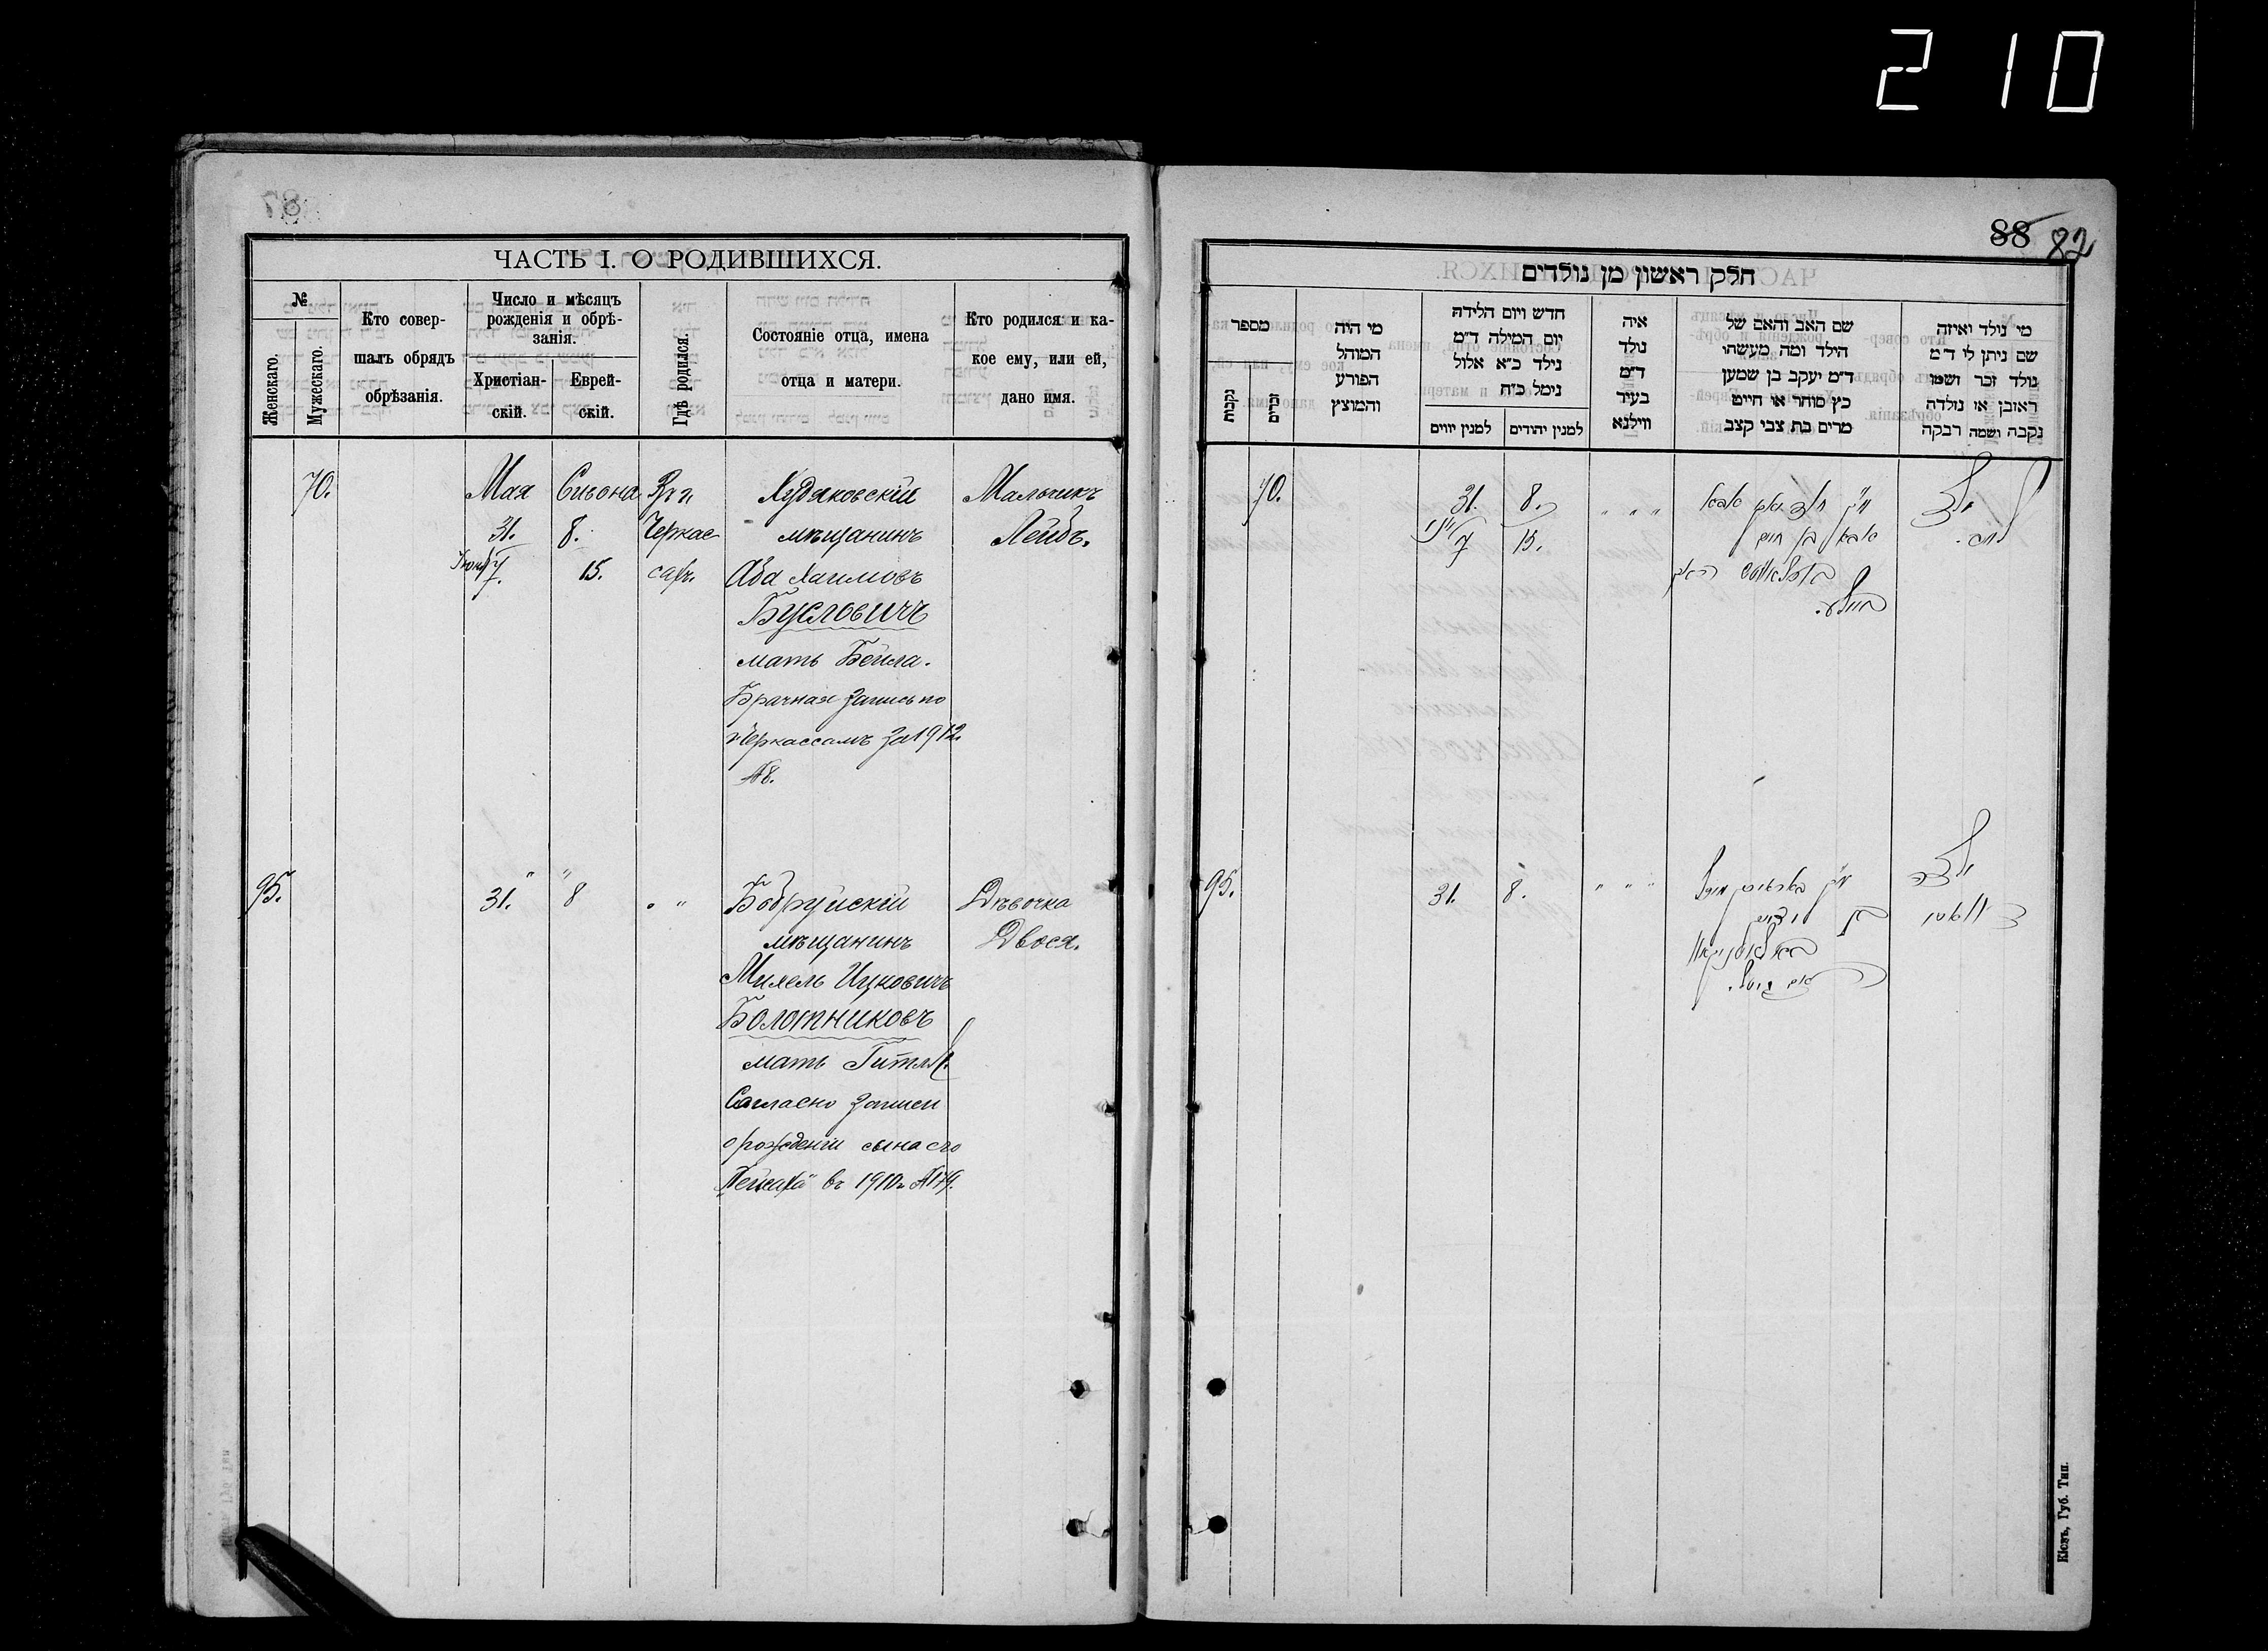 210
87
ЧАСТЬ I. О РОДИВШИХСЯ.
№
Женскаго.
Мужескаго.
Кто совер-
шалъ обрядъ
обрѣзанія.
Число и мѣсяцъ
рожденія и обрѣ-
занія.
Христіан-
скій.
Еврей-
скій.
Гдѣ родился.
Состояніе отца, имена
отца и матери.
Кто родился и ка-
кое ему, или ей,
дано имя.
70.
Мая
31.
7.
Сивона
8.
15.
Черкас
сахъ.
мѣщанинъ
Аба Хаимовъ
Бусловичъ
мать Бейла.
Брачная запись по
г. Черкассамъ за 1912.
№8.
Мальчикъ
Лейбъ.
95.
31. "
8 "
" "
Бобруйскій
мѣщанинъ
Михель Ицковичъ
Болотниковъ
мать Гитля.
Согласно записи
о рожденіи сына его
въ 1910г №179.
Дѣвочка
Двося.
88 82
חלק ראשון מן נולדים
מספר
נקבות
זכרים
מי היה
המוהל
הפורע
והמוצץ
חדש ויום הלידה
יום המילה ד״מ
נילד כ״א אלול
נימל כ״ח
למנין יווים
למנין יהודים
איה
נולד
ד״מ
בעיר
ווילנא
שם האב והאם של
הילד ומה מעשהו
ד״מ יעקב בן שמען
כץ סוחר או חייט
מרים בת צבי קצב
מי נולד ואיזה
שם ניתן לו ד״מ
נולד זכר ושמו
ראובן או נולדה
נקבה ושמה רבקה
70.
31.
יוני 7
8.
15.
" " "
אבא בן חיים
ביילע.
ילד
לייב.
95.
31.
8.
" " "
בן
ילדה
Кіевъ, Губ. Тип.